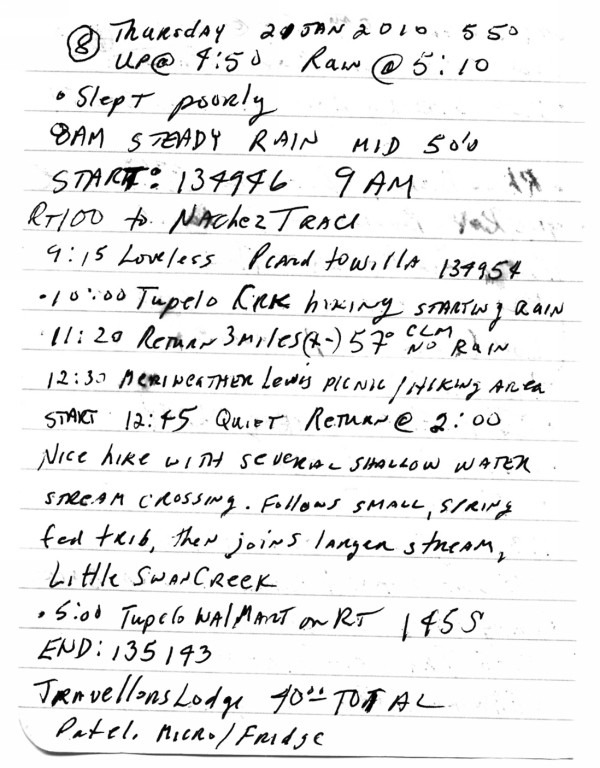 ⑧ Thursday 21 JAN 2010 550
UP@ 4:50 RAIN @ 5:10
• Slept poorly
8AM STEADY RAIN MID 50's
START: 134946 9 AM
RT100 to NACHEZ TRACE
9:15 Loveless PCARD to WILLA 134954
•10:00 Tupelo CRK hiking STARTING RAIN
11:20 RETURN 3 MILES (+-) 57° CLM NO RAIN
12:30 MERIWEATHER LEWIS PICNIC / HIKING AREA
START 12:45 QUIET RETURN @ 2:00
NICE HIKE WITH SEVERAL SHALLOW WATER
STREAM CROSSING. FOLLOWS SMALL, SPRING
fed TRIB, then joins larger STREAM,
Little SWAN CREEK
• 5:00 Tupelo WALMART on RT 145S
END: 135143
TRAVELLORS Lodge 40.00 TOTAL
Patel. MICRO/FRIDGE